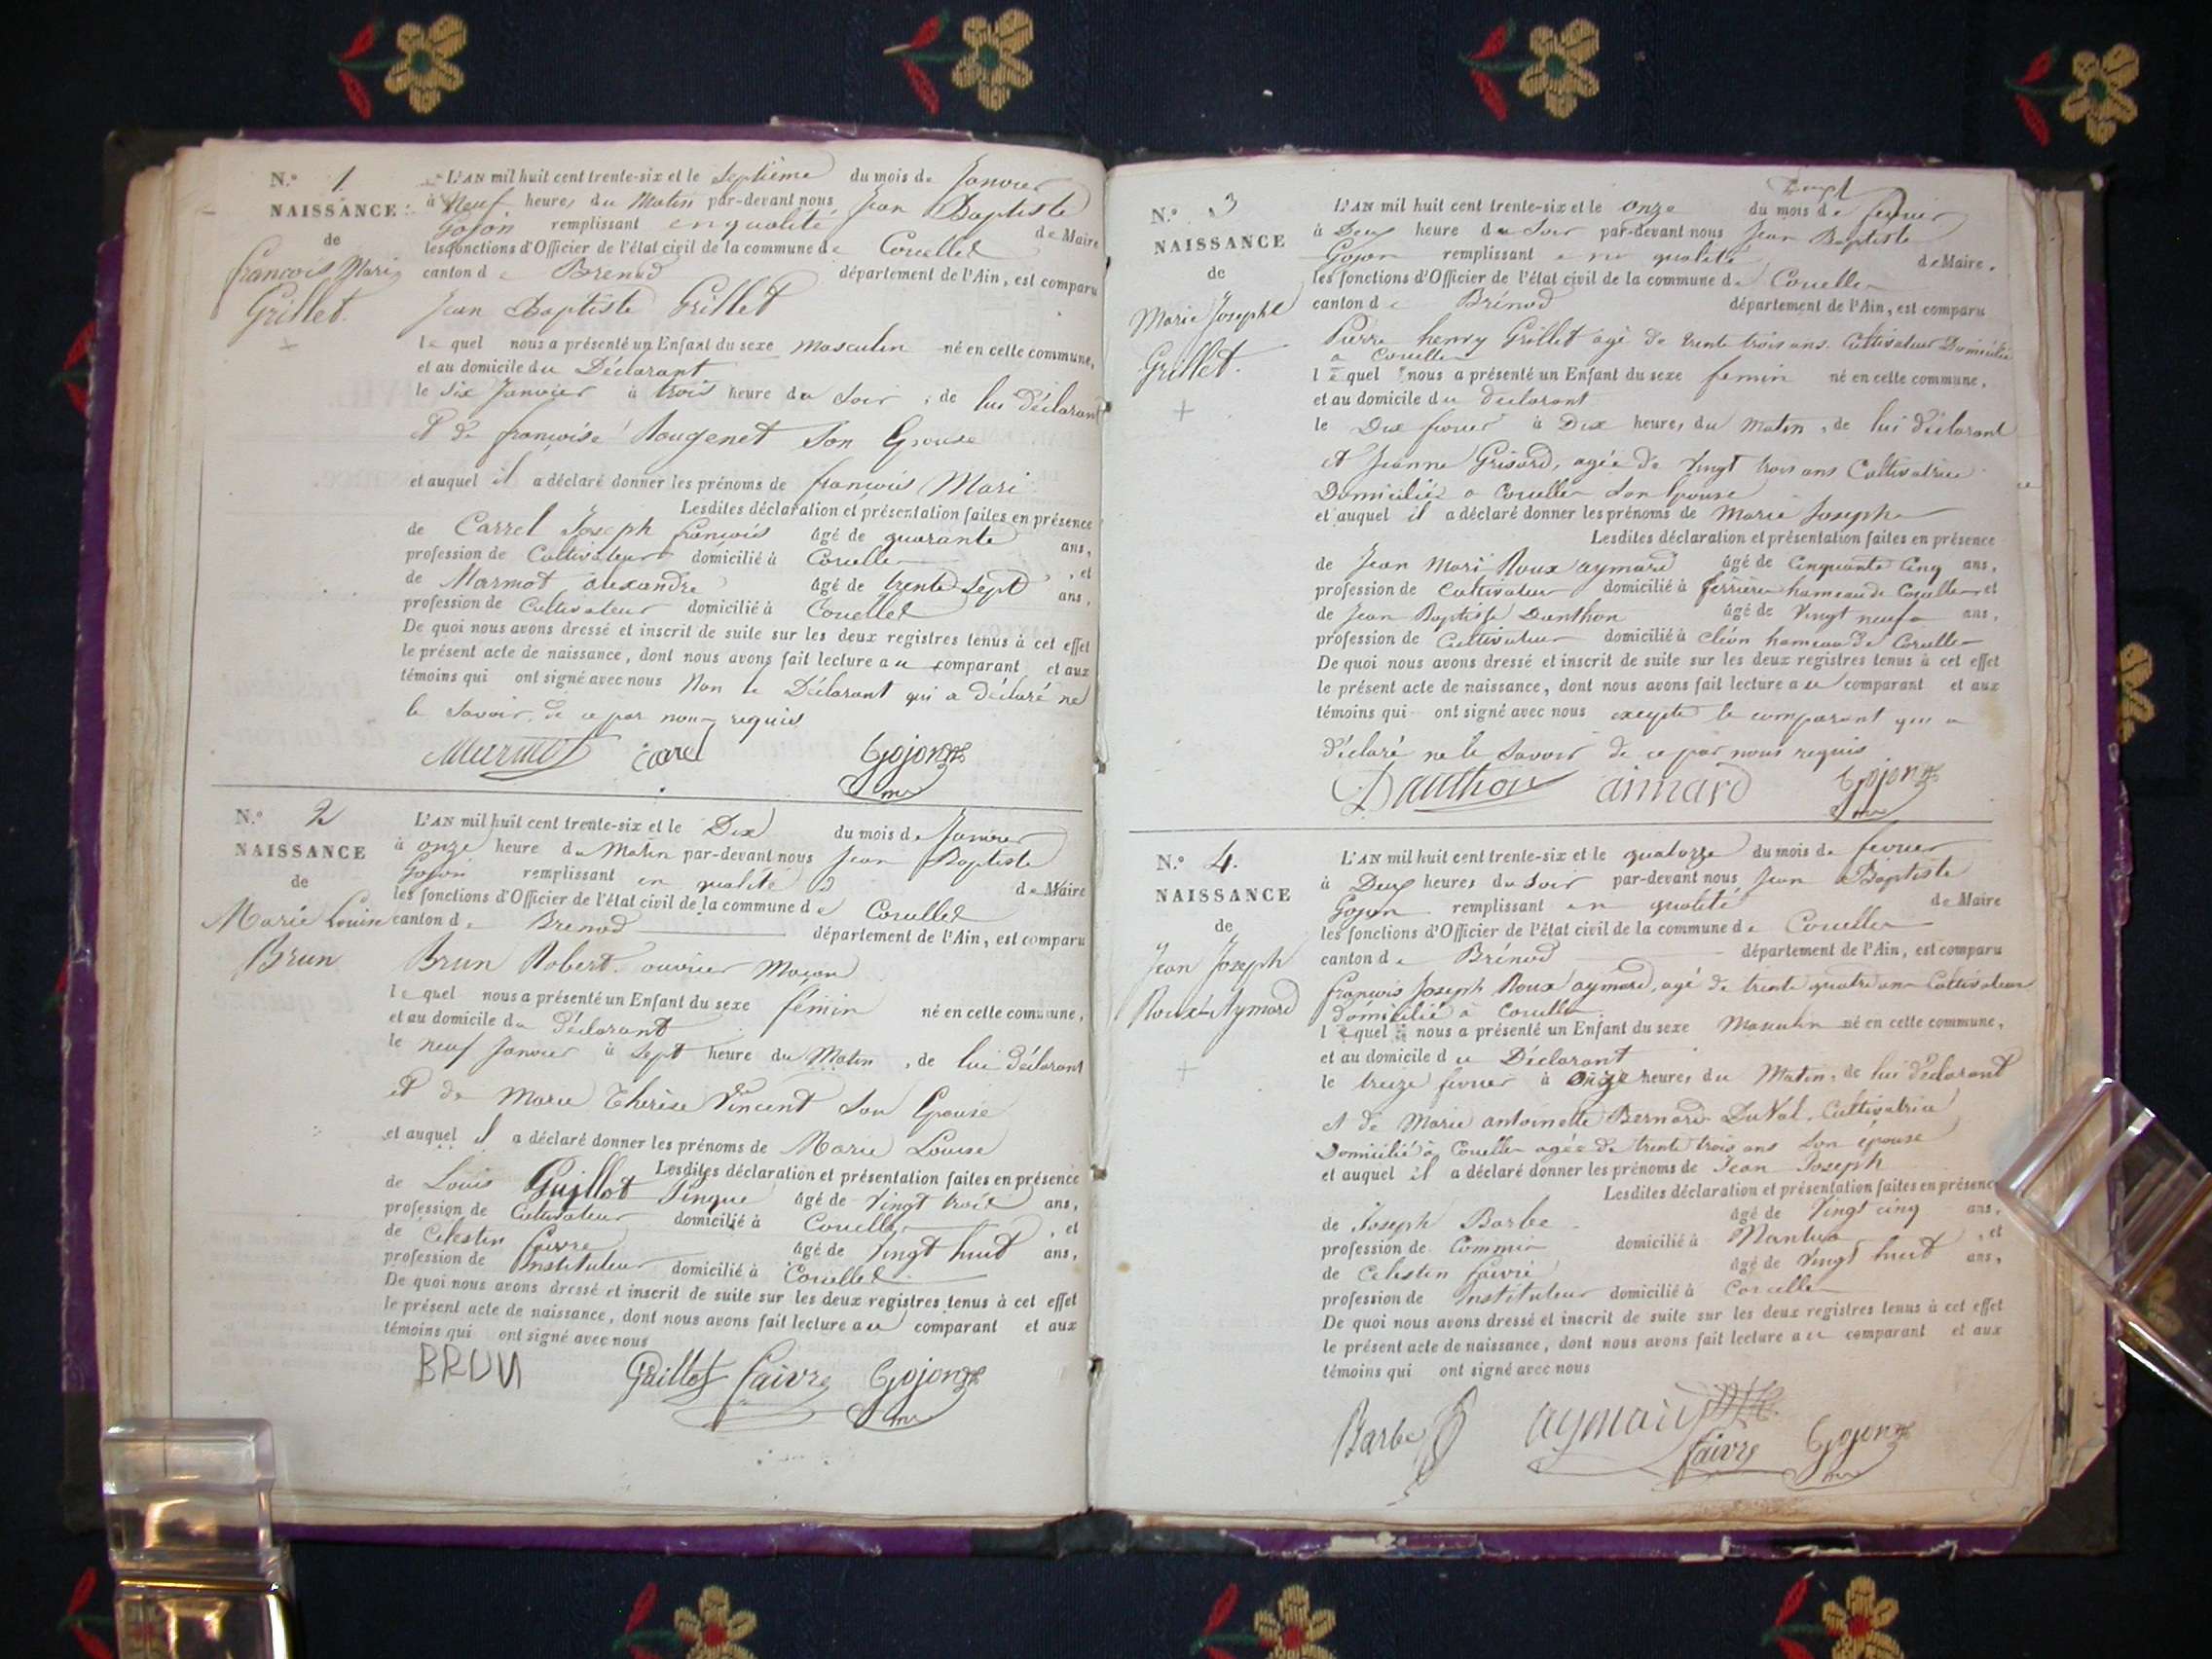 N.° 1.
NAISSANCE
de
françois Mari
Grillet.
L'AN mil huit cent trente-six et le Septième du mois de Janvier
à Neuf heures du Matin par-devant nous Jean Baptiste
Gojon remplissant en qualité de Maire
les fonctions d'Officier de l'état civil de la commune de Corcelles
canton de Brenod département de l'Ain, est comparu
Jean Baptiste Grillet
lequel nous a présenté un Enfant du sexe masculin né en cette commune,
et au domicile du Déclarant
le Six Janvier à trois heure du Soir, de lui déclarant
et de françoise Rougenet Son Epouse
et auquel il a déclaré donner les prénoms de françois Mari
Lesdites déclaration et présentation faites en présence
de Carrel Joseph françois âgé de quarante ans,
profession de Cultivateur domicilié à Corcelle, et
de Marmot alexandre âgé de trente Sept ans,
profession de Cultivateur domicilié à Corcelles
De quoi nous avons dressé et inscrit de suite sur les deux registres tenus à cet effet
le présent acte de naissance, dont nous avons fait lecture au comparant et aux
témoins qui ont signé avec nous Non le Déclarant qui a déclaré ne
le Savoir de ce par nous requis
Murmot Carel Gojon
N.° 2
NAISSANCE
de
Marie Louise
Brun
L'AN mil huit cent trente-six et le Dix du mois de Janvier
à onze heure du Matin par-devant nous Jean Baptiste
Gojon remplissant en qualité de Maire
les fonctions d'Officier de l'état civil de la commune de Corcelles
canton de Brenod département de l'Ain, est comparu
Brun Robert ouvrier Maçon
lequel nous a présenté un Enfant du sexe féminin né en cette commune,
et au domicile du déclarant
le neuf Janvier à Sept heure du Matin, de lui déclarant
et de Marie Thérèse Vincent Son Epouse
et auquel il a déclaré donner les prénoms de Marie Louise
Lesdites déclaration et présentation faites en présence
de Louis Guillot âgé de Vingt trois ans,
profession de Cultivateur domicilié à Corcelles, et
de Célestin faivre âgé de Vingt huit ans,
profession de Instituteur domicilié à Corcelles
De quoi nous avons dressé et inscrit de suite sur les deux registres tenus à cet effet
le présent acte de naissance, dont nous avons fait lecture au comparant et aux
témoins qui ont signé avec nous
BRUN Guillot faivre Gojon
N.° 3
NAISSANCE
de
Marie Josephe
Grillet.
L'AN mil huit cent trente-six et le onze du mois de fevrier
à Deux heure du Soir par-devant nous Jean Baptiste
Gojon remplissant en qualité de Maire.
les fonctions d'Officier de l'état civil de la commune de Corcelles
canton de Brénod département de l'Ain, est comparu
Pierre henry Grillet agé de trente trois ans. Cultivateur Domicilié
a Corcelles
lequel nous a présenté un Enfant du sexe feminin né en cette commune,
et au domicile du déclarant
le Dix fevrier à Dix heures du Matin, de lui déclarant
et Jeanne Grisard, agée de Vingt trois ans Cultivatrice
Domicilié a Corcelles Son Epouse
et auquel il a déclaré donner les prénoms de Marie Josephe
Lesdites déclaration et présentation faites en présence
de Jean Mari Roux aymard âgé de Cinquante Cinq ans,
profession de Cultivateur domicilié à ferriere hameau de Corcelles et
de Jean Baptiste Danthon âgé de Vingt neuf ans,
profession de Cultivateur domicilié à Cléon hameau de Corcelles
De quoi nous avons dressé et inscrit de suite sur les deux registres tenus à cet effet
le présent acte de naissance, dont nous avons fait lecture au comparant et aux
témoins qui ont signé avec nous excepté le comparant qui a
déclaré ne le Savoir de ce par nous requis
Danthon aimard Gojon
N.° 4.
NAISSANCE
de
Jean Joseph
Roux-Aymard
L'AN mil huit cent trente-six et le quatorze du mois de fevrier
à Deux heures du Soir par-devant nous Jean Baptiste
Gojon remplissant en qualité de Maire
les fonctions d'Officier de l'état civil de la commune de Corcelles
canton de Brénod département de l'Ain, est comparu
françois Joseph Roux aymard, agé de trente quatre ans Cultivateur
domicilié à Corcelles
lequel nous a présenté un Enfant du sexe Masculin né en cette commune,
et au domicile du Déclarant
le treize fevrier à onze heures du Matin, de lui déclarant
et de Marie antoinette Bernard DuVal, Cultivatrice
Domicilié à Corcelles agée de trente trois ans Son épouse
et auquel il a déclaré donner les prénoms de Jean Joseph
Lesdites déclaration et présentation faites en présence
de Joseph Barbe âgé de Vingt cinq ans,
profession de Commis domicilié à Nantua, et
de Célestin faivre âgé de Vingt huit ans,
profession de Instituteur domicilié à Corcelles
De quoi nous avons dressé et inscrit de suite sur les deux registres tenus à cet effet
le présent acte de naissance, dont nous avons fait lecture au comparant et aux
témoins qui ont signé avec nous
Barbe aymard faivre Gojon